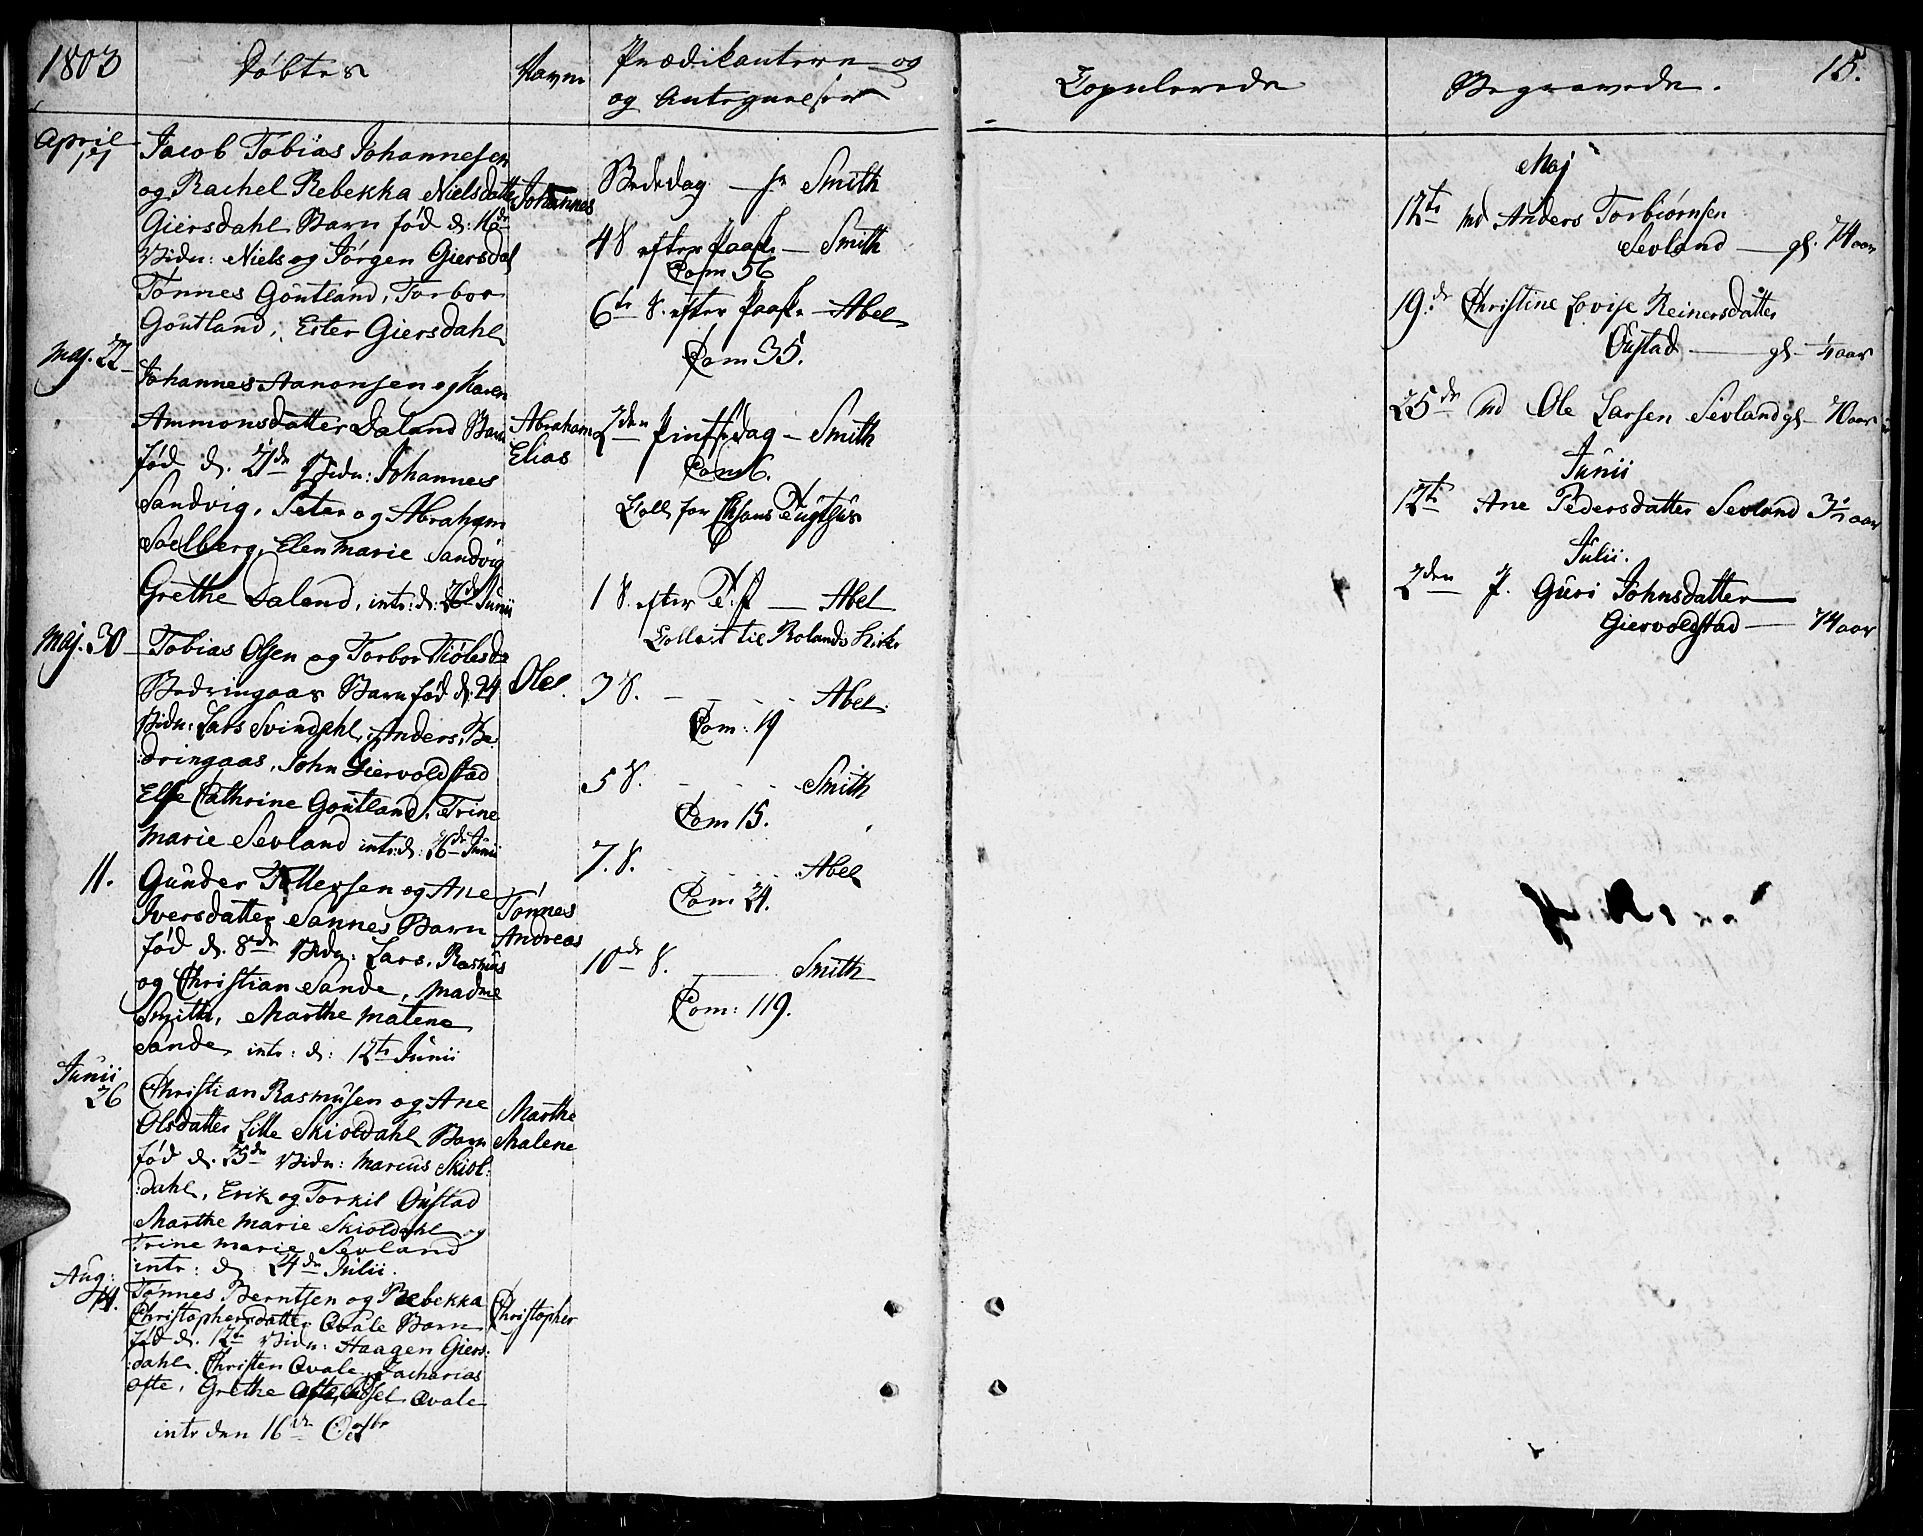 1803
Døbte
Navn
Prædikanterne og
og Antegnelser
April
17
Jacob Tobias Johannesen
og Rachel Rebekka Nielsdatter
Giersdahl Barn fød d: 16de
Vidn: Niels og Jørgen Giersdal
Tønnes Goutland, Torbor
Goutland, Ester Giersdahl
Johannes
Maj. 22
Johannes Aanonsen og Karen
Ammonsdatter Daland Barn
fød d. 21de Vidn: Johannes
Sandvig, Peter og Abraham
Soelberg, Elen Marie Sandvig
Grethe Daland, intr: d: 26de Junii
Abraham
Elias
Maj. 30
Tobias Olsen og Torbor Tiølesd.
Bedringaas Barn fød d. 24
Vidn: Lars Svindahl, Anders Be
dringaas, John Giervoldstad
Else Cathrine Goutland, Trine
Marie Sevland intr: d: 26de Junii
Ole
11.
Gunder Tollefsen og Ane
Iversdatter Sannes Barn
fød d. 8de Vidn: Lars, Rasmus
og Christian Sande, Madme
Smith, Marthe Malene
Sande intr: d: 12te Junii
Tønnes
Andreas
Junii
26
Christian Rasmusen og Ane
Olsdatter Lille Skioldahl Barn
fød d. 25de Vidn: Marcus Skiol:
:dahl, Erik og Torkil Oustad
Marthe Marie Skioldahl og
Trine Marie Sevland
intr: d: 24de Julii.
Marthe
Malene
Aug:
14.
Tønnes Berntsen og Rebekka
Christophersdatter Qvale Barn
fød d. 12te Vidn: Haagen Giers:
:dahl. Christen Qvale, Zacharias
Ofte, Grethe Ofte, Qvale
intr den 16de Octbr
Christopher
Bededag — hr Smith
4 S. efter Paaske — Smith
Com 56
6te S. efter Paaske — Abel
Com 35.
2den Pintsedag — Smith
Com 6.
Coll for Chsans Tugthus
1 S. efter — Abel
Collect til Rolands Kirke
3 S. — Abel
Com: 19
5 S. — Smith
Com 15.
7. S. — Abel
Com 24.
10de S. — Smith
Com: 119.
Copulerede
Begravede.
15.
Maj
12te Anders Torbiørnsen
Sevland — gl. 74 aar
19.de Christine Lovise Reinersdatter
Oustad — gl — aar
25de Ole Larsen Sevland gl — 70 aar
Junii
12te Ane Pedersdatter Sevland 3½ aar
Julii.
2den P. Guri Johnsdatter
Giervoldstad — 74 aar